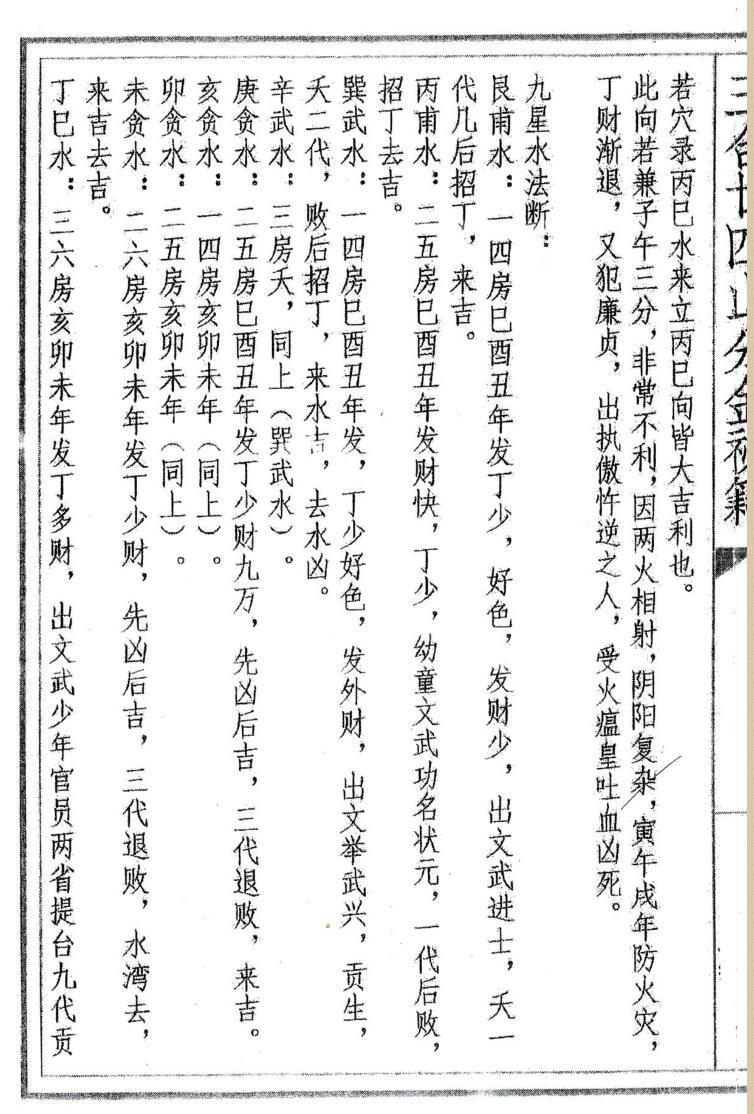 三合廿四山分金秘籍
若穴录丙巳水来立丙巳向皆大吉利也。
此向若兼子午三分，非常不利，因两火相射，阴阳复杂，寅午戌年防火灾，
丁财渐退，又犯廉贞，出执傲忤逆之人，受火瘟皇吐血凶死。
九星水法断：
艮甫水：一四房巳酉丑年发丁少，好色，发财少，出文武进士，夭一
代几后招丁，来吉。
丙甫水：二五房巳酉丑年发财快，丁少，幼童文武功名状元，一代后败，
招丁去吉。
巽武水：一四房巳酉丑年发，丁少好色，发外财，出文举武兴，贡生，
夭二代，败后招丁，来水吉，去水凶。
辛武水：三房夭，同上（巽武水）。
庚贪水：二五房巳酉丑年发丁少财九万，先凶后吉，三代退败，来吉。
亥贪水：一四房亥卯未年（同上）。
卯贪水：二五房亥卯未年（同上）。
未贪水：二六房亥卯未年发丁少财，先凶后吉，三代退败，水湾去，
来吉去吉。
丁巳水：三六房亥卯未年发丁多财，出文武少年官员两省提台九代贡